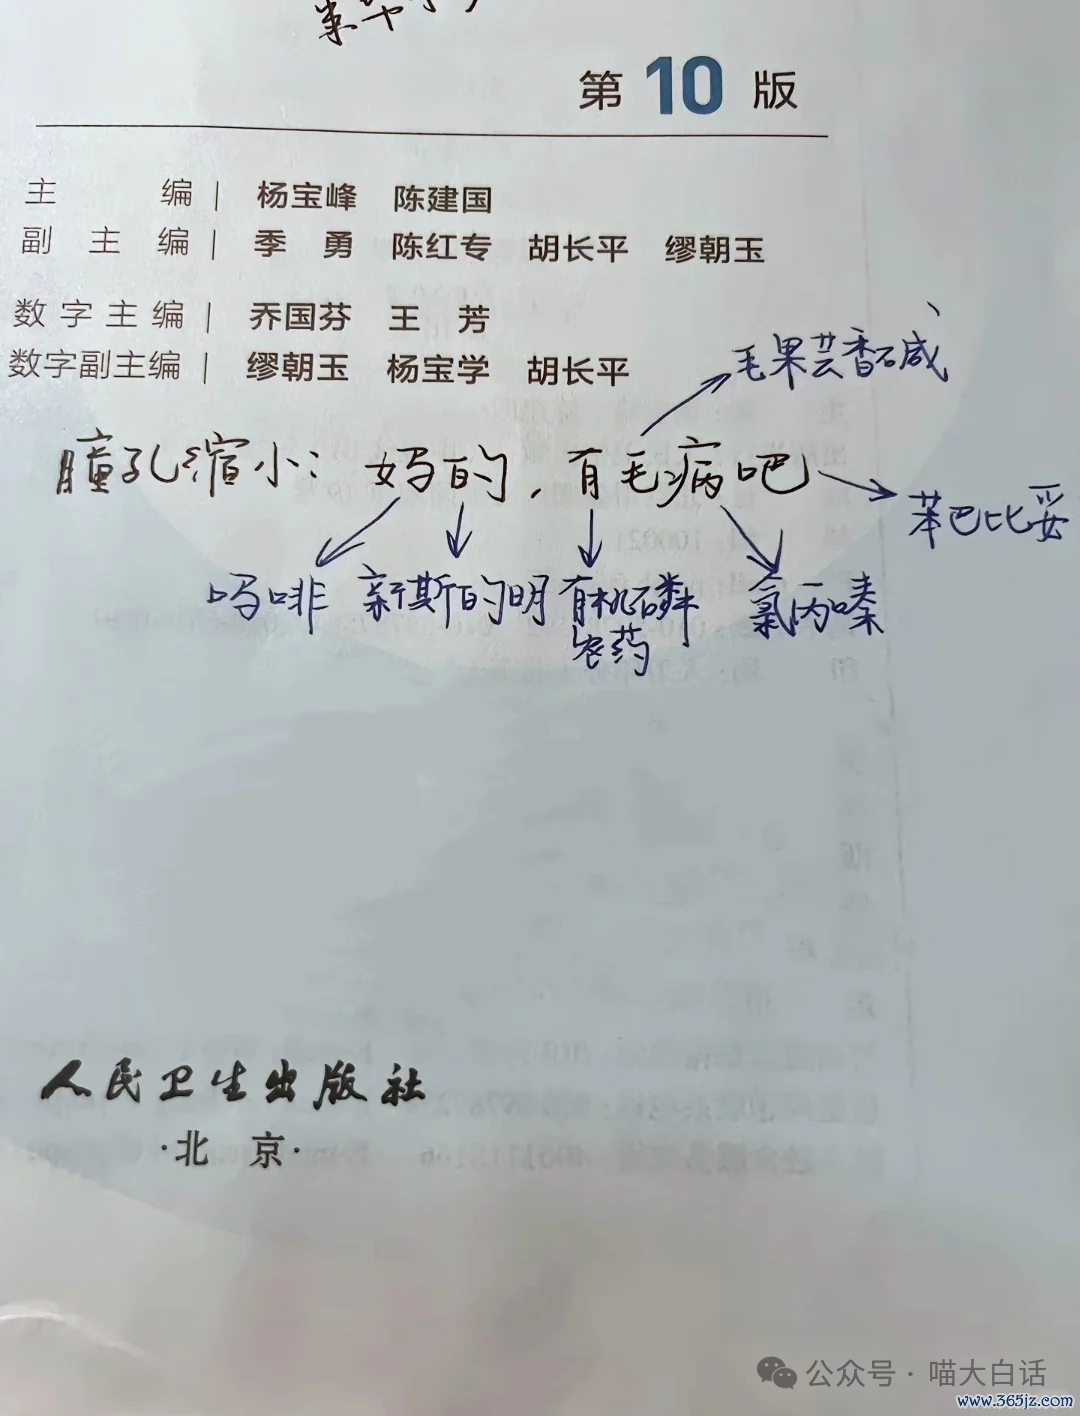 第 10 版
主 编 | 杨宝峰 陈建国
副 主 编 | 季 勇 陈红专 胡长平 缪朝玉
数 字 主 编 | 乔国芬 王 芳
数字副主编 | 缪朝玉 杨宝学 胡长平
毛果芸香碱
瞳孔缩小：妈的，有毛病吧
苯巴比妥
吗啡 新斯的明 有机磷 氯丙嗪
农药
人民卫生出版社
·北 京·
公众号 · 喵大白话
www.365jz.com